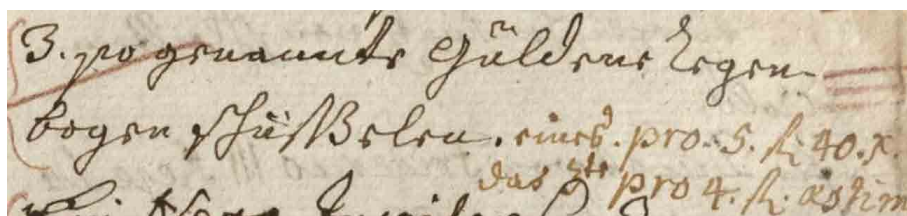 3. so genannte Güldene Regen-
bogen schüsselen. eines. pro. 5. fl 40. x.
das 2te pro 4. fl.